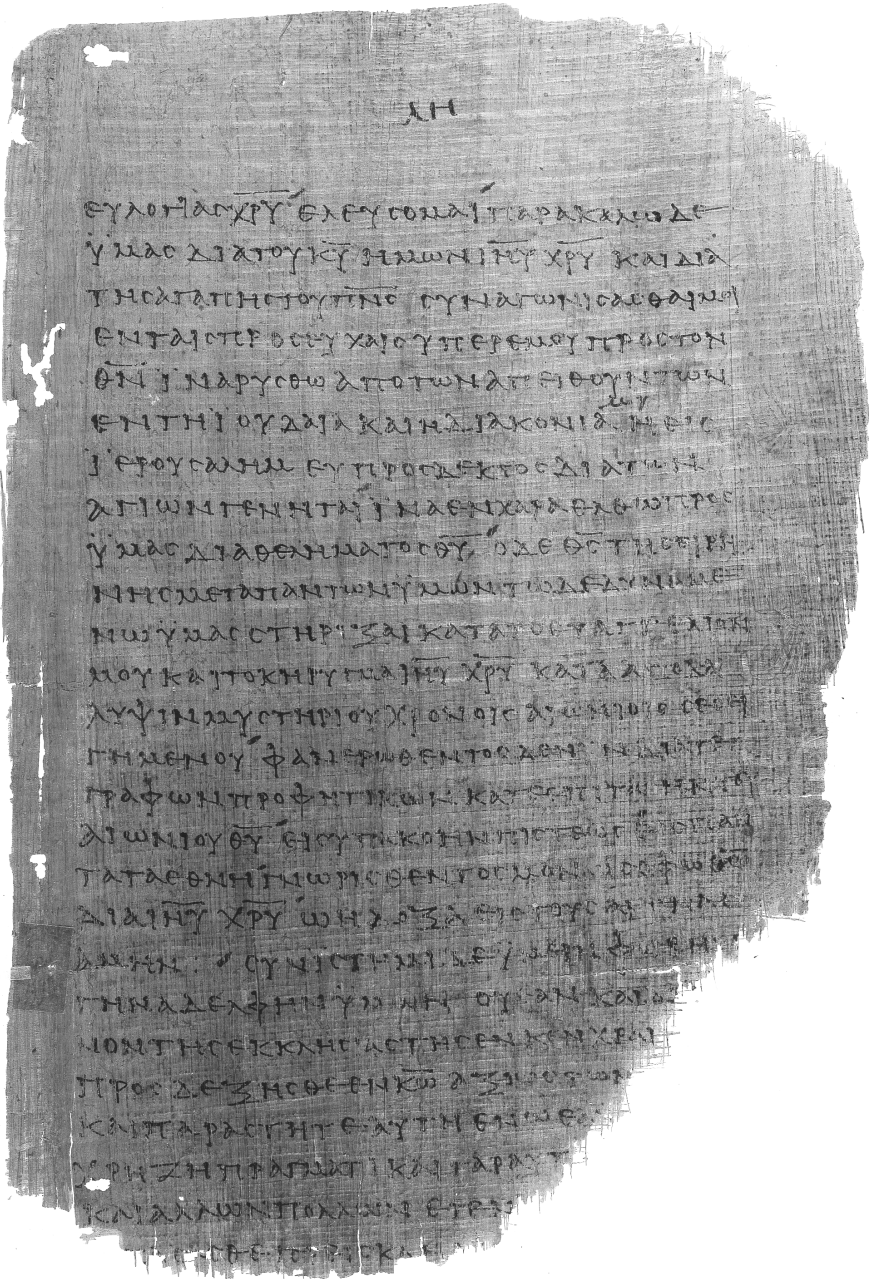 ΛΗ
ευλογιας χρυ ελευσομαι παρακαλω δε
ϋμας δια του κυ ημων ιηυ χρυ και δια
της αγαπης του πνς συναγωνισασθαι μοι
εν ταις προσευχαις υπερ εμου προς τον
θν ϊνα ρυσθω απο των απειθουντων
εν τη ϊουδαια και η διακονια μου η εις
ϊερουσαλημ ευπροσδεκτος δια των
αγιων γενηται ϊνα εν χαρα ελθω προς
ϋμας δια θεληματος θυ ο δε θς της ειρη
νης μετα παντων ϋμων τω δε δυναμε
νω ϋμας στηριξαι κατα το ευαγγελιον
μου και το κηρυγμα ιηυ χρυ κατα αποκα
λυψιν μυστηριου χρονοις αιωνιοις σεσι
γημενου φανερωθεντος δε νυν δια τε
γραφων προφητικων κατ επιταγην του
αιωνιου θυ εις υπακοην πιστεως εις παν
τα τα εθνη γνωρισθεντος μονω σοφω θω
δια ιηυ χρυ ω η δοξα εις τους αιωνας
αμην συνιστημι δε ϋμειν φοιβην
την αδελφην ϋμων ουσαν και
νον της εκκλησιας της εν κενχρε
προσδεξησθε εν κω αξιως των
και παραστητε αυτη εν ω εα
χρηζη πραγματι και γαρ αυτ
και αλλων πολλων εγεν